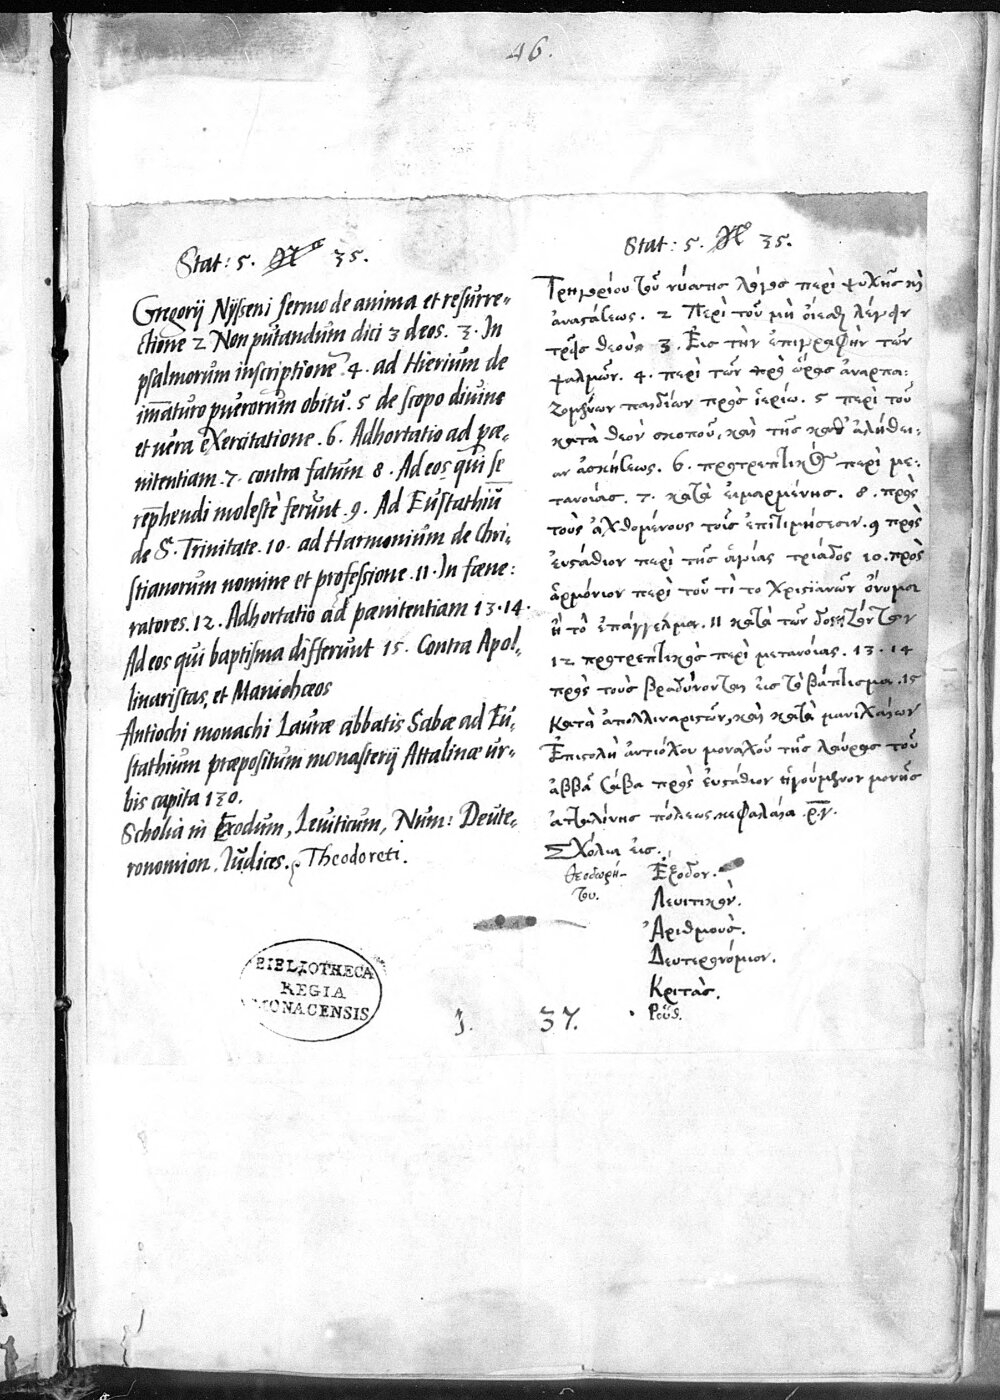 46.
Stat: 5. 35.
Gregorij Nysseni sermo de anima et resurre-
ctione 2 Non putandum dici 3 deos. 3. In
psalmorum inscriptione. 4. ad Hierium de
im̄aturo puerorum obitu. 5 de scopo divine
et uera exercitatione. 6. Adhortatio ad pœ-
nitentiam. 7. contra fatum 8. Ad eos qui se
rep̄hendi molestè ferunt. 9. Ad Eustathiū
de S. Trinitate. 10. ad Harmonium de Chri-
stianorum nomine et professione. 11. In fœne:
ratores. 12. Adhortatio ad pœnitentiam 13. 14.
Ad eos qui baptisma differunt 15. Contra Apol-
linaristas, et Manichæos
Antiochi monachi Lauræ abbatis Sabæ ad Eu-
stathium præpositum monasterij Attalinæ ur-
bis capita 130.
Scholia in Exodum, Leuiticum, Num: Deute-
ronomion, Iudices. Theodoreti.
Stat: 5. 35.
Γρηγορίου τοῦ νύσσης λόγος περὶ ψυχῆς καὶ
ἀναστάσεως. 2 Περὶ τοῦ μὴ οἴεσθαι λέγειν
τρεῖς θεοὺς 3. Εἰς τὴν ἐπιγραφὴν τῶν
ψαλμῶν. 4. περὶ τῶν πρὸ ὥρας ἀναρπα:
ζομένων παιδίων πρὸς ἱερίω. 5 περὶ τοῦ
κατὰ θεὸν σκοποῦ, καὶ τῆς κατ' ἀλήθει-
αν ἀσκήσεως. 6. προτρεπτικὸς περὶ με-
τανοίας. 7. κατὰ εἱμαρμένης. 8. πρὸς
τοὺς ἀχθομένους τοῖς ἐπιτιμήσεσιν. 9 πρὸς
εὐστάθιον περὶ τῆς ἁγίας τριάδος 10. πρὸς
ἁρμόνιον περὶ τοῦ τί το χριστιανῶν ὄνομα
ἢ τὸ ἐπάγγελμα. 11 κατὰ τῶν τοκιζόντων
12 προτρεπτικὸς περὶ μετανοίας. 13. 14
πρὸς τοὺς βραδύνοντας εἰς τὸ βάπτισμα. 15
κατὰ ἀπολλιναριστῶν, καὶ κατὰ μανιχαίων
Ἐπιστολὴ ἀντιόχου μοναχοῦ τῆς λαύρας τοῦ
ἀββᾶ σάβα πρὸς εὐστάθιον ἡγούμενον μονῆς
ἀτταλίνης πόλεως κεφάλαια ρλ.
Σχόλια εἰς.
Θεοδωρή-
του.
Ἔξοδον.
Λευιτικὸν.
Ἀριθμοὺς.
Δευτερονόμιον.
Κριτὰς.
Ρούθ.
BIBLIOTHECA
REGIA
MONACENSIS.
J. 37.